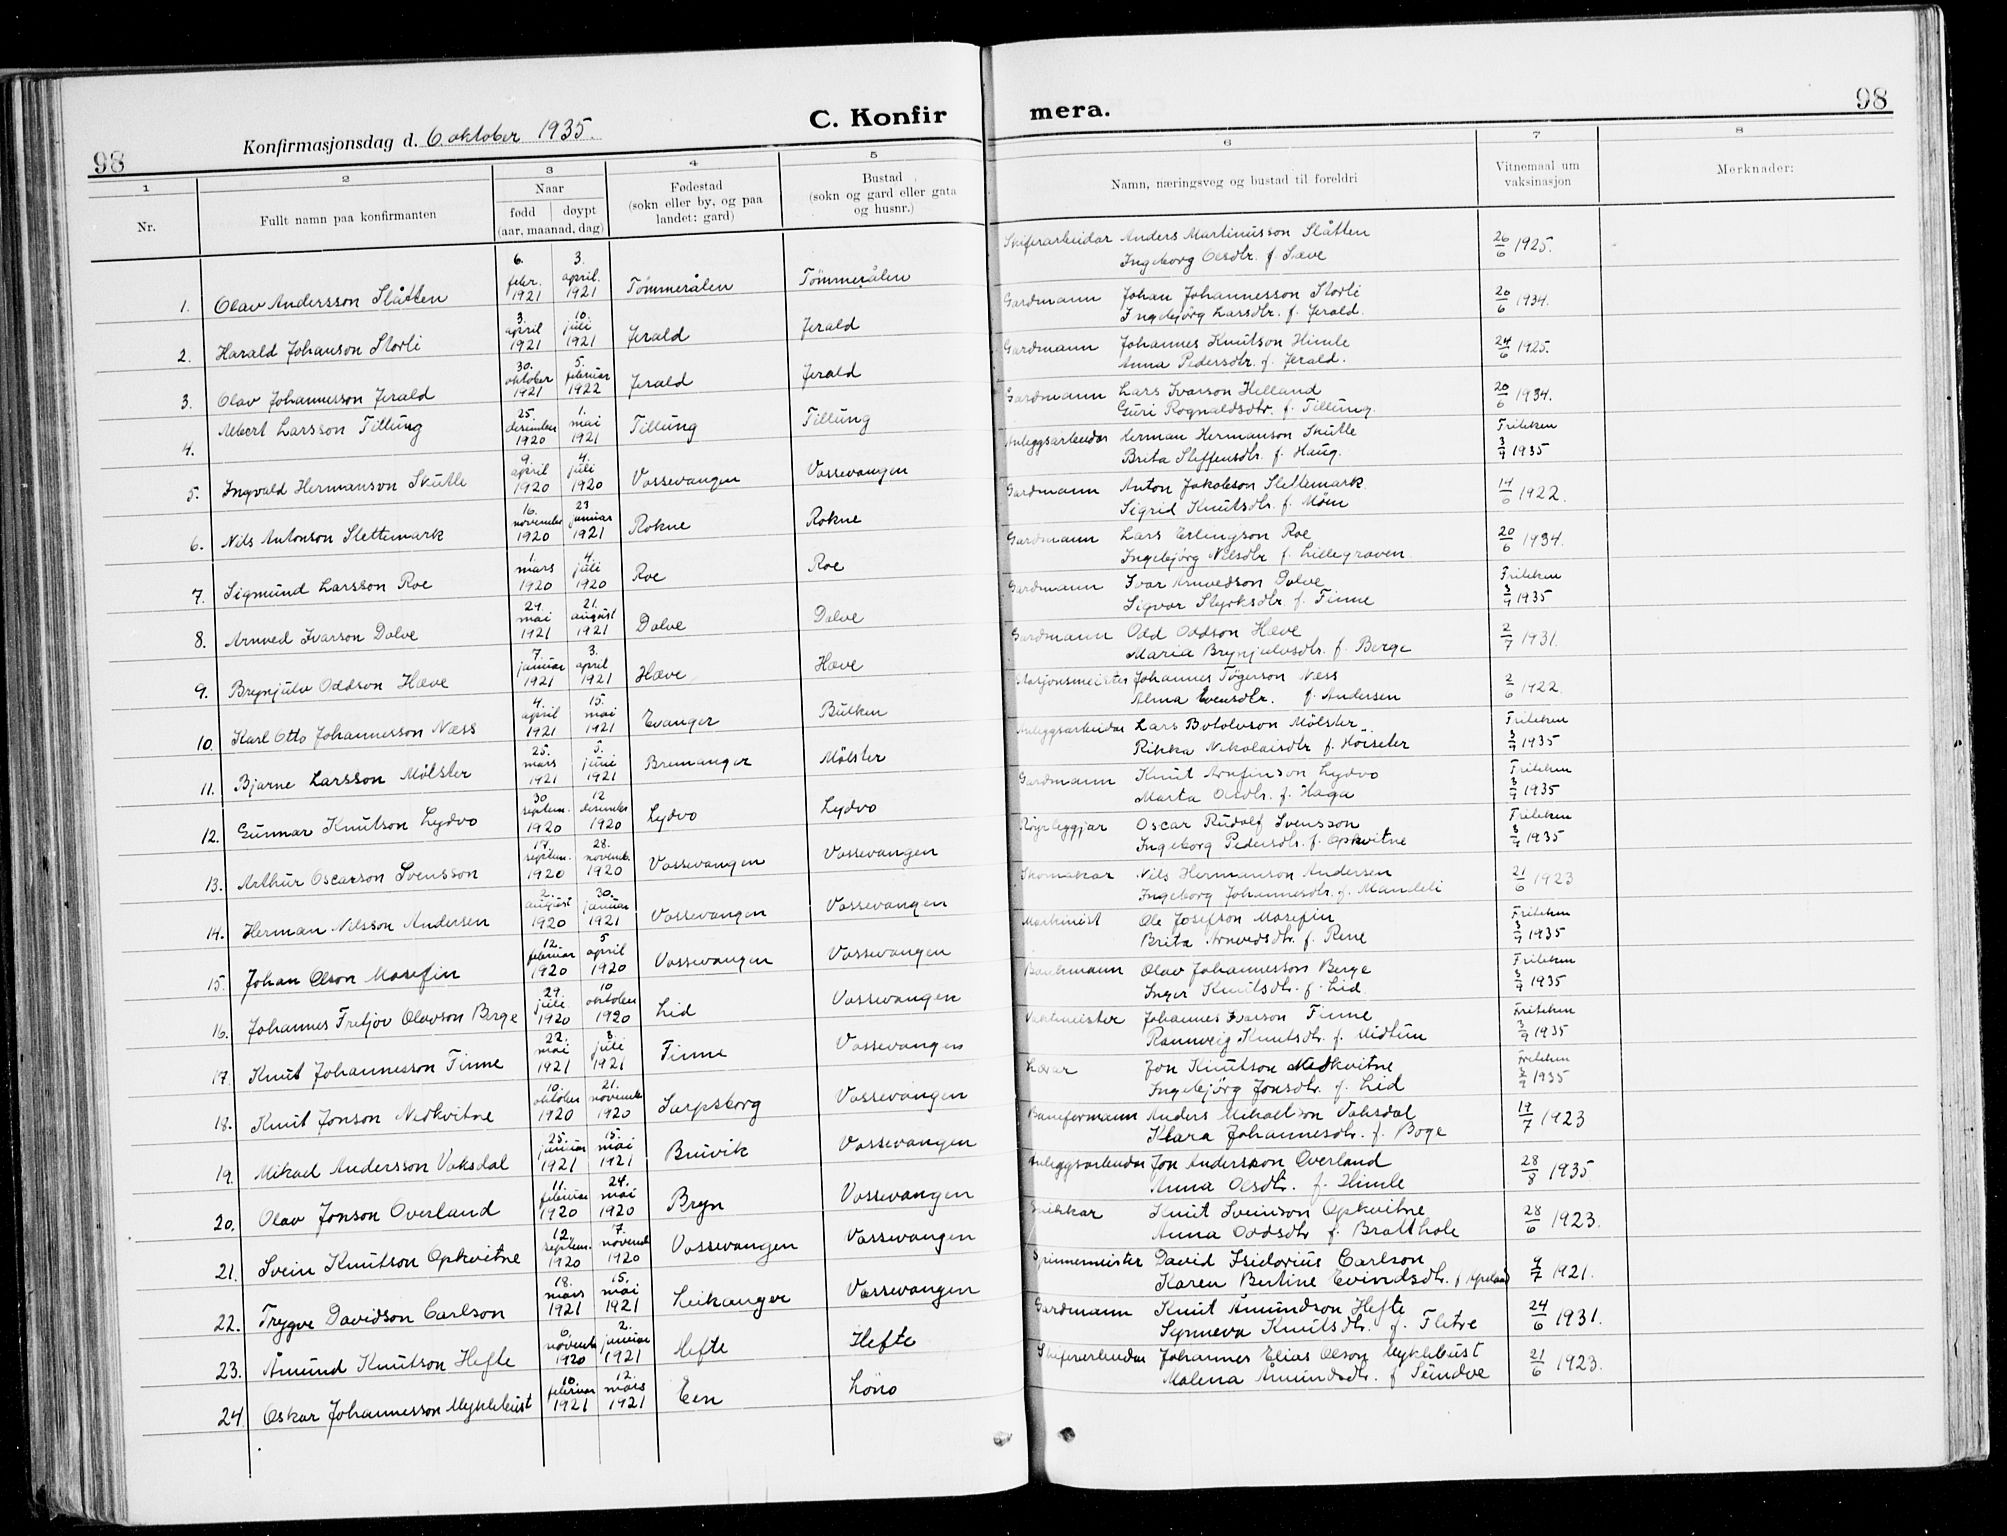 98
Konfirmasjonsdag d. 6 oktober 1935.
C. Konfir mera.
98
1 2 3 4 5 6 7 8
Nr.
Fullt namn paa konfirmanten
Naar
fødd døypt
(aar, maanad, dag)
Fødestad
(sokn eller by, og paa
landet: gard)
Bustad
(sokn og gard eller gata
og husnr.)
Namn, næringsveg og bustad til foreldri
Vitnemaal um
vaksinasjon
Merknader:
1. Olav Andersson Slåtten 6. febr. 1921 3. april 1921 Tömmerålen Tömmerålen Skiferarbeidar Anders Martinusson Slåtten
Ingeborg Olsdtr. f. Sæve 26/6 1925.
2. Harald Johanson Storli 3. april 1921 10. juli 1921 Jerald Jerald Gardmann Johan Johannesson Storli
Ingebjörg Larsdtr. f. Jerald. 20/6 1934.
3. Olav Johannesson Jerald 30. oktober 1921 5. februar 1922 Jerald Jerald Gardmann Johannes Knutson Himle
Anna Pedersdtr. f. Jerald. 24/6 1925.
4. Albert Larsson Tillung 25. desember 1920 1. mai 1921 Tillung Tillung Gardmann Lars Ivarson Helland
Guri Rognaldsdtr. f. Tillung. 20/6 1934.
5. Ingvald Hermanson Skutle 9. april 1920 4. juli 1920 Vossevangen Vossevangen Anleggsarbeidar Herman Hermanson Skutle
Brita Steffensdtr. f. Haug. Friteken 3/9 1935
6. Nils Antonson Slettemark 16. november 1920 23 januar 1921 Rokne Rokne Gardmann Anton Jakobson Slettemark
Sigrid Knutsdtr. f. Möen 14/6 1922.
7. Sigmund Larsson Roe 1. mars 1920 4. juli 1920 Roe Roe Gardmann Lars Erlingson Roe
Ingebjörg Nilsdtr f. Lillegraven 20/6 1934.
8. Arnved Ivarson Dolve 29. mai 1921 21. august 1921 Dolve Dolve Gardmann Ivar Arnvedson Dolve
Sigvor Styrksdtr. f. Finne Friteken 3/9 1935
9. Brynjulv Oddson Hæve 7. januar 1921 3. april 1921 Hæve Hæve Gardmann Odd Oddson Hæve
Maria Brynjulvsdtr. f. Berge 2/7 1931.
10. Karl Otto Johannesson Næss 4. april 1921 15. mai 1921 Evanger Bulken Stasjonsmeister Johannes Tögerson Næss
Alma Evensdtr. f. Andersen 2/6 1922.
11. Bjarne Larsson Mölster 25. mars 1921 5. juni 1921 Bremanger Mölster Anleggsarbeidar Lars Botolvson Mölster
Rikka Nikolaisdtr f. Höiseter Friteken 3/9 1935
12. Gunnar Knutson Lydvo 30 septem. 1920 12 desember 1920 Lydvo Lydvo Gardmann Knut Arnfinson Lydvo
Marta Olsdtr. f. Haga Friteken 3/9 1935
13. Arthur Oscarson Svensson 19. septem. 1920 28. novemb. 1920 Vossevangen Vossevangen Röyrleggjar Oscar Rudolf Svensson
Ingeborg Pedersdtr. f. Opkvitne Friteken 3/9 1935
14. Herman Nilsson Andersen 2. august 1920 30. januar 1921 Vossevangen Vossevangen Skomakar Nils Hermanson Andersen
Ingeborg Johannesdtr. f. Mandeli 21/6 1923
15. Johan Olson Mosefin 12. februar 1920 5 april 1920 Vossevangen Vossevangen Maskinist Ole Josefson Mosefin
Brita Arnvedsdtr. f. Rene Friteken 3/9 1935
16. Johannes Fretjov Olavson Berge 29. juli 1920 10 oktober 1920 Lid Vossevangen Bankmann Olav Johannesson Berge
Inger Knutsdtr. f. Lid Friteken 3/9 1935
17. Knut Johannesson Finne 22. mai 1921 3. juli 1921 Finne Vossevangen Vaktmeister Johannes Ivarson Finne
Rannveig Knutsdtr. f. Midtun Friteken 3/9 1935
18. Knut Jonson Nedkvitne 10. oktober 1920 21. novemb. 1920 Sarpsborg Vossevangen Lærar Jon Knutson Nedkvitne
Ingebjörg Jonsdtr. f. Lid Friteken 3/9 1935
19. Mikael Andersson Vaksdal 25. januar 1921 15. mai 1921 Bruvik Vossevangen Baneformann Anders Mikaelson Vaksdal
Klara Johannesdtr. f. Boge 19/7 1923
20. Olav Jonson Overland 11. februar 1920 24. mai 1920 Bryn Vossevangen Anleggsarbeidar Jon Andersson Overland
Anna Olsdtr. f. Himle 28/8 1935
21. Svein Knutson Opkvitne 12. septem. 1920 7. novemb. 1920 Vossevangen Vossevangen Snikkar Knut Sveinson Opkvitne
Anna Oddsdtr f. Bratthole 28/6 1923.
22. Trygve Davidson Carlson 18. mars 1921 15. mai 1921 Leikanger Vossevangen Spinnemeister David Isidorius Carlson
Karen Bertine Evindsdtr. f. 7 1921.
23. Åmund Knutson Hefte 6. novemb. 1920 2. januar 1921 Hefte Hefte Gardmann Knut Åmundson Hefte
Synneva Knutsdtr. f. Fletre 24/6 1931.
24 Oskar Johannesson Myklebust 10. februar 1921 12. mars 1921 Een Löno Skiferarbeidar Johannes Elias Olson Myklebust
Malena Åmundsdtr. f Sundve 21/6 1923.